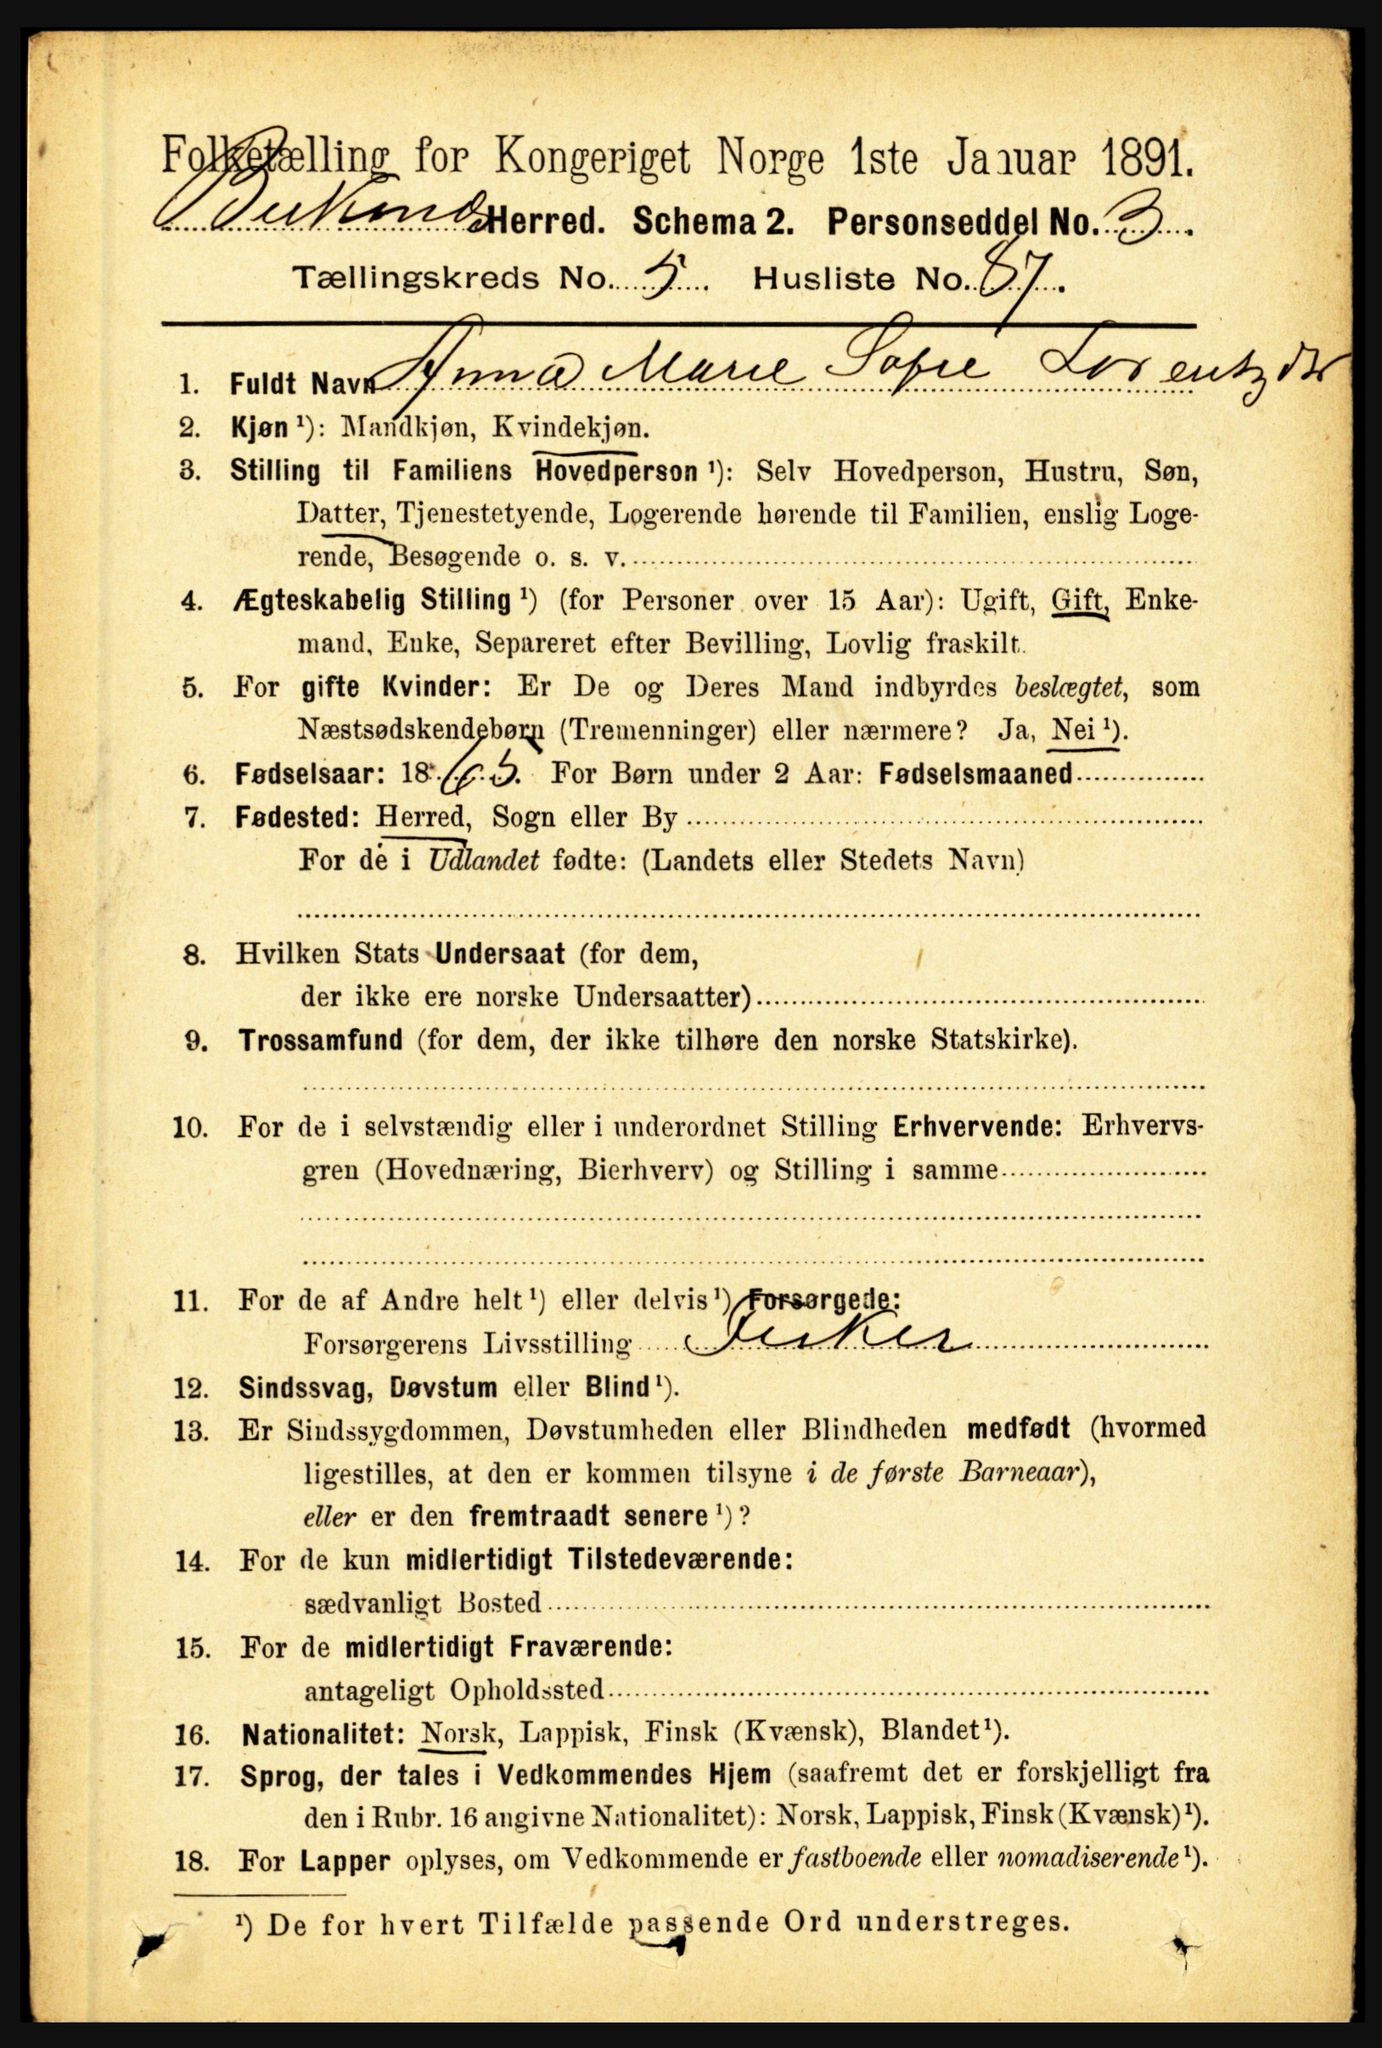 Folketælling for Kongeriget Norge 1ste Januar 1891.
Herred. Schema 2. Personseddel No. 3.
Tællingskreds No. 5. Husliste No. 87.
1. Fuldt Navn Anna Marie Sofie Lorentzdtr
2. Kjøn ¹): Mandkjøn, Kvindekjøn.
3. Stilling til Familiens Hovedperson ¹): Selv Hovedperson, Hustru, Søn,
Datter, Tjenestetyende, Logerende hørende til Familien, enslig Loge-
rende, Besøgende o. s. v.
4. Ægteskabelig Stilling ¹) (for Personer over 15 Aar): Ugift, Gift, Enke-
mand, Enke, Separeret efter Bevilling, Lovlig fraskilt.
5. For gifte Kvinder: Er De og Deres Mand indbyrdes beslægtet, som
Næstsødskendebørn (Tremenninger) eller nærmere? Ja, Nei ¹).
6. Fødselsaar: 1865. For Børn under 2 Aar: Fødselsmaaned
7. Fødested: Herred, Sogn eller By
For de i Udlandet fødte: (Landets eller Stedets Navn)
8. Hvilken Stats Undersaat (for dem,
der ikke ere norske Undersaatter)
9. Trossamfund (for dem, der ikke tilhøre den norske Statskirke).
10. For de i selvstændig eller i underordnet Stilling Erhvervende: Erhvervs-
gren (Hovednæring, Bierhverv) og Stilling i samme
11. For de af Andre helt ¹) eller delvis ¹) Forsørgede:
Forsørgerens Livsstilling Fisker
12. Sindssvag, Døvstum eller Blind ¹).
13. Er Sindssygdommen, Døvstumheden eller Blindheden medfødt (hvormed
ligestilles, at den er kommen tilsyne i de første Barneaar),
eller er den fremtraadt senere ¹)?
14. For de kun midlertidigt Tilstedeværende:
sædvanligt Bosted
15. For de midlertidigt Fraværende:
antageligt Opholdssted
16. Nationalitet: Norsk, Lappisk, Finsk (Kvænsk), Blandet ¹).
17. Sprog, der tales i Vedkommendes Hjem (saafremt det er forskjelligt fra
den i Rubr. 16 angivne Nationalitet): Norsk, Lappisk, Finsk (Kvænsk) ¹).
18. For Lapper oplyses, om Vedkommende er fastboende eller nomadiserende ¹).
¹) De for hvert Tilfælde passende Ord understreges.